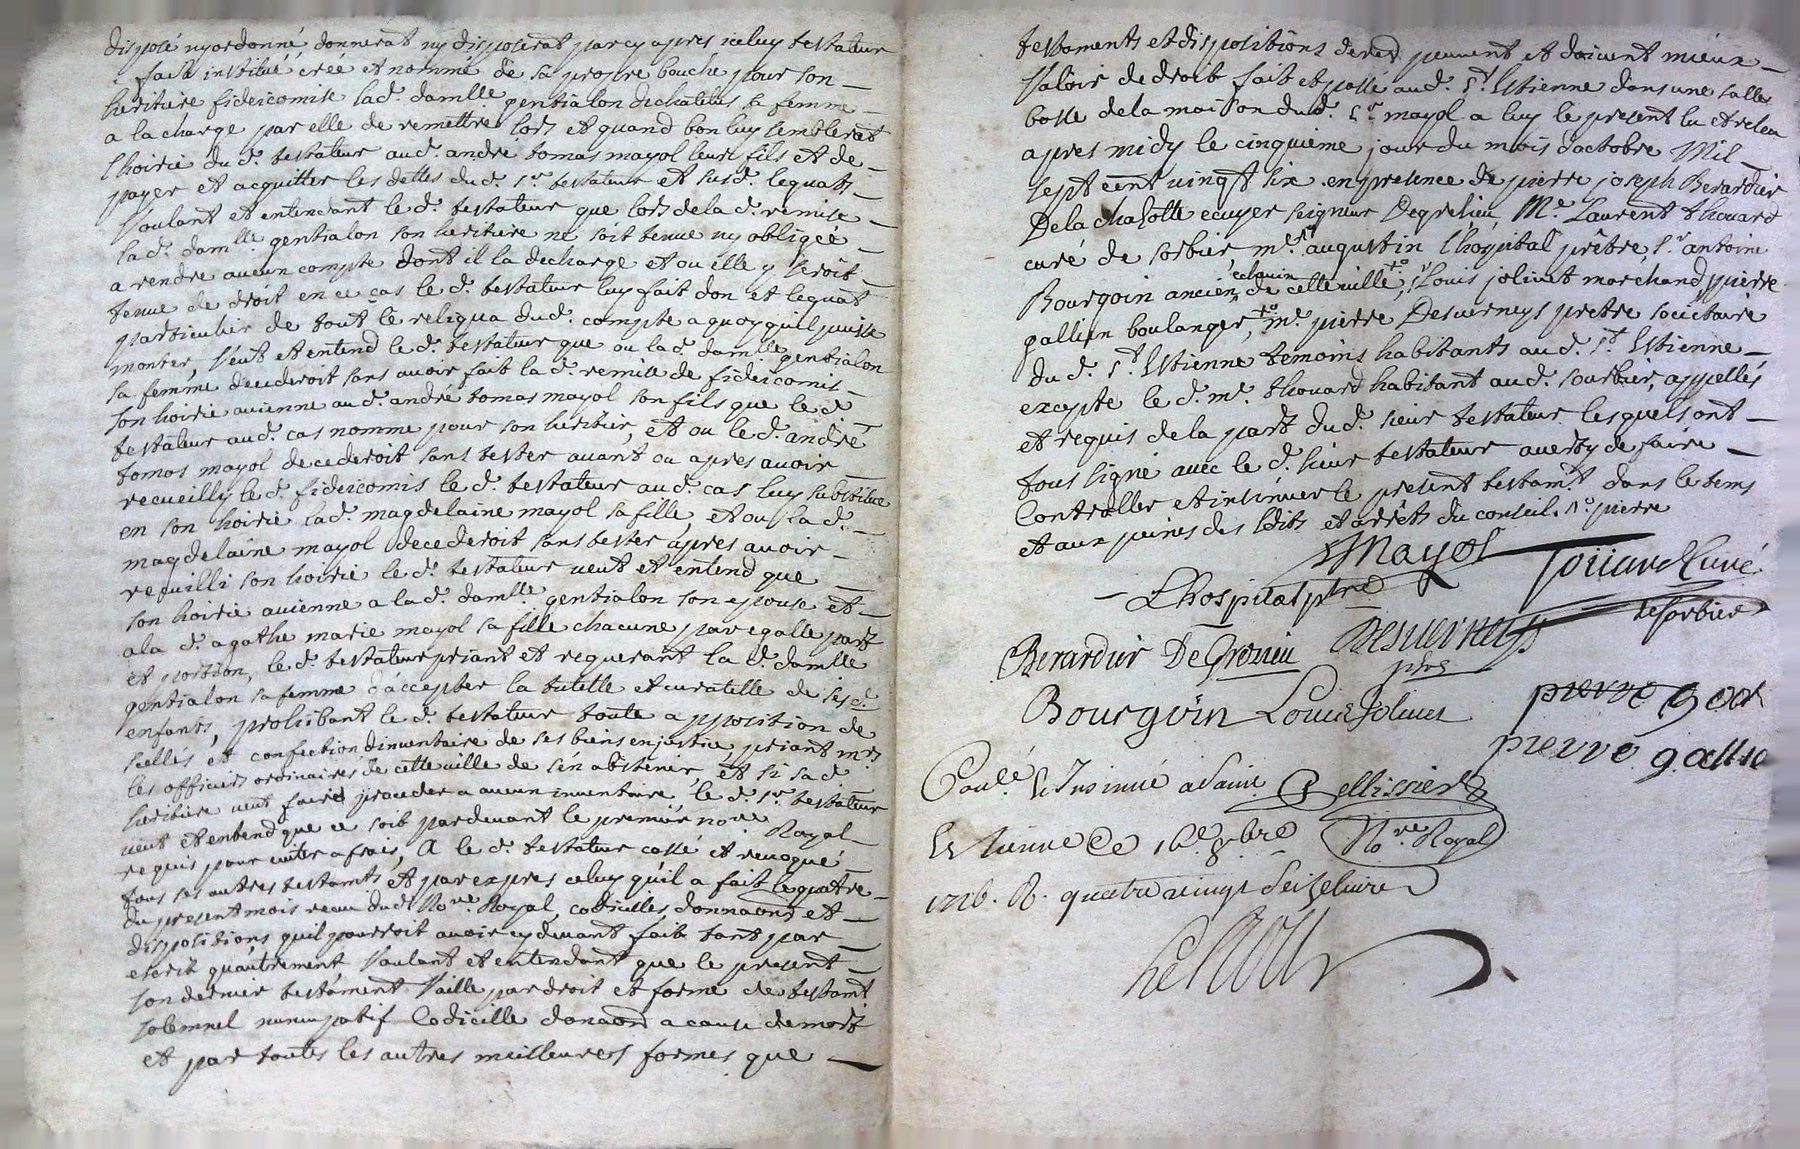 disposé ny ordonné donnerat ny disposerat par cy apres iceluy testateur
a fait institué créé et nommé de sa propre bouche pour son
heritiere fideicomise lad. damlle gentialon dechatelus sa femme
a la charge par elle de remettre lors et quand bon luy semblerat
l'hoirie dud. testateur aud. andre tomas mayol leur fils et de
payer et acquitter les dettes dud. sr. testateur et susd. lequats
voulant et entendant le d. testateur que lors de la d. remise
la d. damlle gentialon son heritiere ne soit tenue ny obligée
a rendre aucun compte dont il la decharge et ou elle y seroit
tenue de droit en ce cas le d. testateur luy fait don et lequat
particulier de tout le reliqua dud. compte a quoy qu'il puisse
monter, veut et entend le d. testateur que ou la d. damlle gentialon
sa femme decederoit sans avoir fait la d. remise de fideicomis
son hoirie avienne au d. andré tomas mayol son fils que le d.
testateur aud. cas nomme pour son heritier, et ou le d. andré
tomas mayol decederoit sans tester avant ou apres avoir
recueilly le d. fideicomis le d. testateur aud. cas luy substitue
en son hoirie lad. magdelaine mayol sa fille, et ou la d.
magdelaine mayol decederoit sans tester apres avoir
requilli son hoirie le d. testateur veut et entend que
son hoirie avienne a la d. damlle gentialon son epouse et
a la d. agathe marie mayol sa fille chacune par egalle part
et portion, le d. testateur priant et requerant la d. damlle
gentialon sa femme d'accepter la tutelle et curatelle de ses d.
enfants, prohibant le d. testateur toute apposition de
scellés et confection d'inventaire de ses biens en justice, priant mrs
les officiers ordinaires de cette ville de s'en abstenir, et si sa d.
heritiere veut faire proceder a aucun inventaire le d. sr. testateur
veut et entend que ce soit pardevant le premier nore Royal
requis pour eviter a frais, A le d. testateur cassé et revoqué
tous ses autres testamts et par expres celuy qu'il a fait le quatre
du present mois receu dud. Nore Royal, codicilles, donnaons et
dispositions qu'il pourroit avoir cy devant fait tant par
escrit qu'autrement voulant et entendant que le present
son dernier testament vaille par droit et forme de testamt
solemnel nuncupatif Codicille donaon a cause de mort
et par toutes les autres meilleures formes que
testaments et dispositions de ned peuvent et doivent mieux
valoir de droit fait et passé aud. st. Estienne dans une salle
basse de la maison dud. sr. mayol a luy le present lu et releu
apres midy le cinquieme jour du mois d'octobre Mil
sept cent vingt six en presence de pierre joseph Berardier
De la chasotte ecuyer seigneur De grezieu Me. Laurent thouard
curé de sorbier mre. augustin l'hospital prêtre, sr. antoine
Bourgoin ancien echevin de cette ville, sr. Louis jolivet marchand, pierre
gallien boulanger, et mre. pierre Desverneys prêtre societaire
du d. st. Estienne temoins habitants au d. st. Estienne
excepte le d. mre. thouard habitant au d. sourbier, appellés
et requis de la part du d. sieur testateur lesquels ont
tous signé avec le d. sieur testateur averty de faire
Controller et insinuer le present testamt. dans le tems
et aux peines des Edits et arrêts du conseil.
Mayol
Toüard Curé
de sorbier
Lhospital ptre
Berardier De Grezieu
Desverneys
ptre
Bourgoin Louis Jolivet
pierre gal
pierre gallie
Conlé. & Insinué a Saint
Pellissier
Estienne Ce 16e. 8bre
Nore Royal
1726. R. quatre vingt seize livres